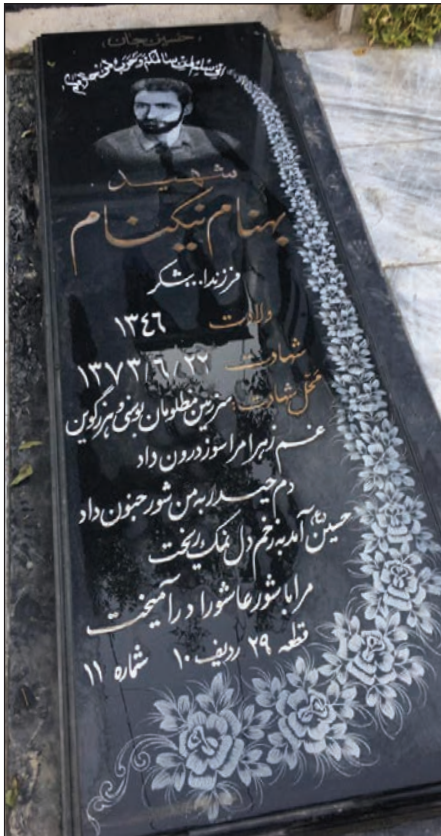 (حسین جان)
انی سلم لمن سالمکم و حرب لمن حاربکم
شهید
بهنام نیکنام
فرزند ا..بشکر
ولادت ۱۳۴۶
شهادت ۱۳۷۳/۶/۲۲
محل شهادت: سرزمین مظلومان بوسنی و هرزگوین
غم زهرا مرا سوز درون داد
دم حیدر به من شور جنون داد
حسین آمد به زخم دل نمک ریخت
مرا با شور عاشورا درآمیخت
قطعه ۲۹ ردیف ۱۰ شماره ۱۱